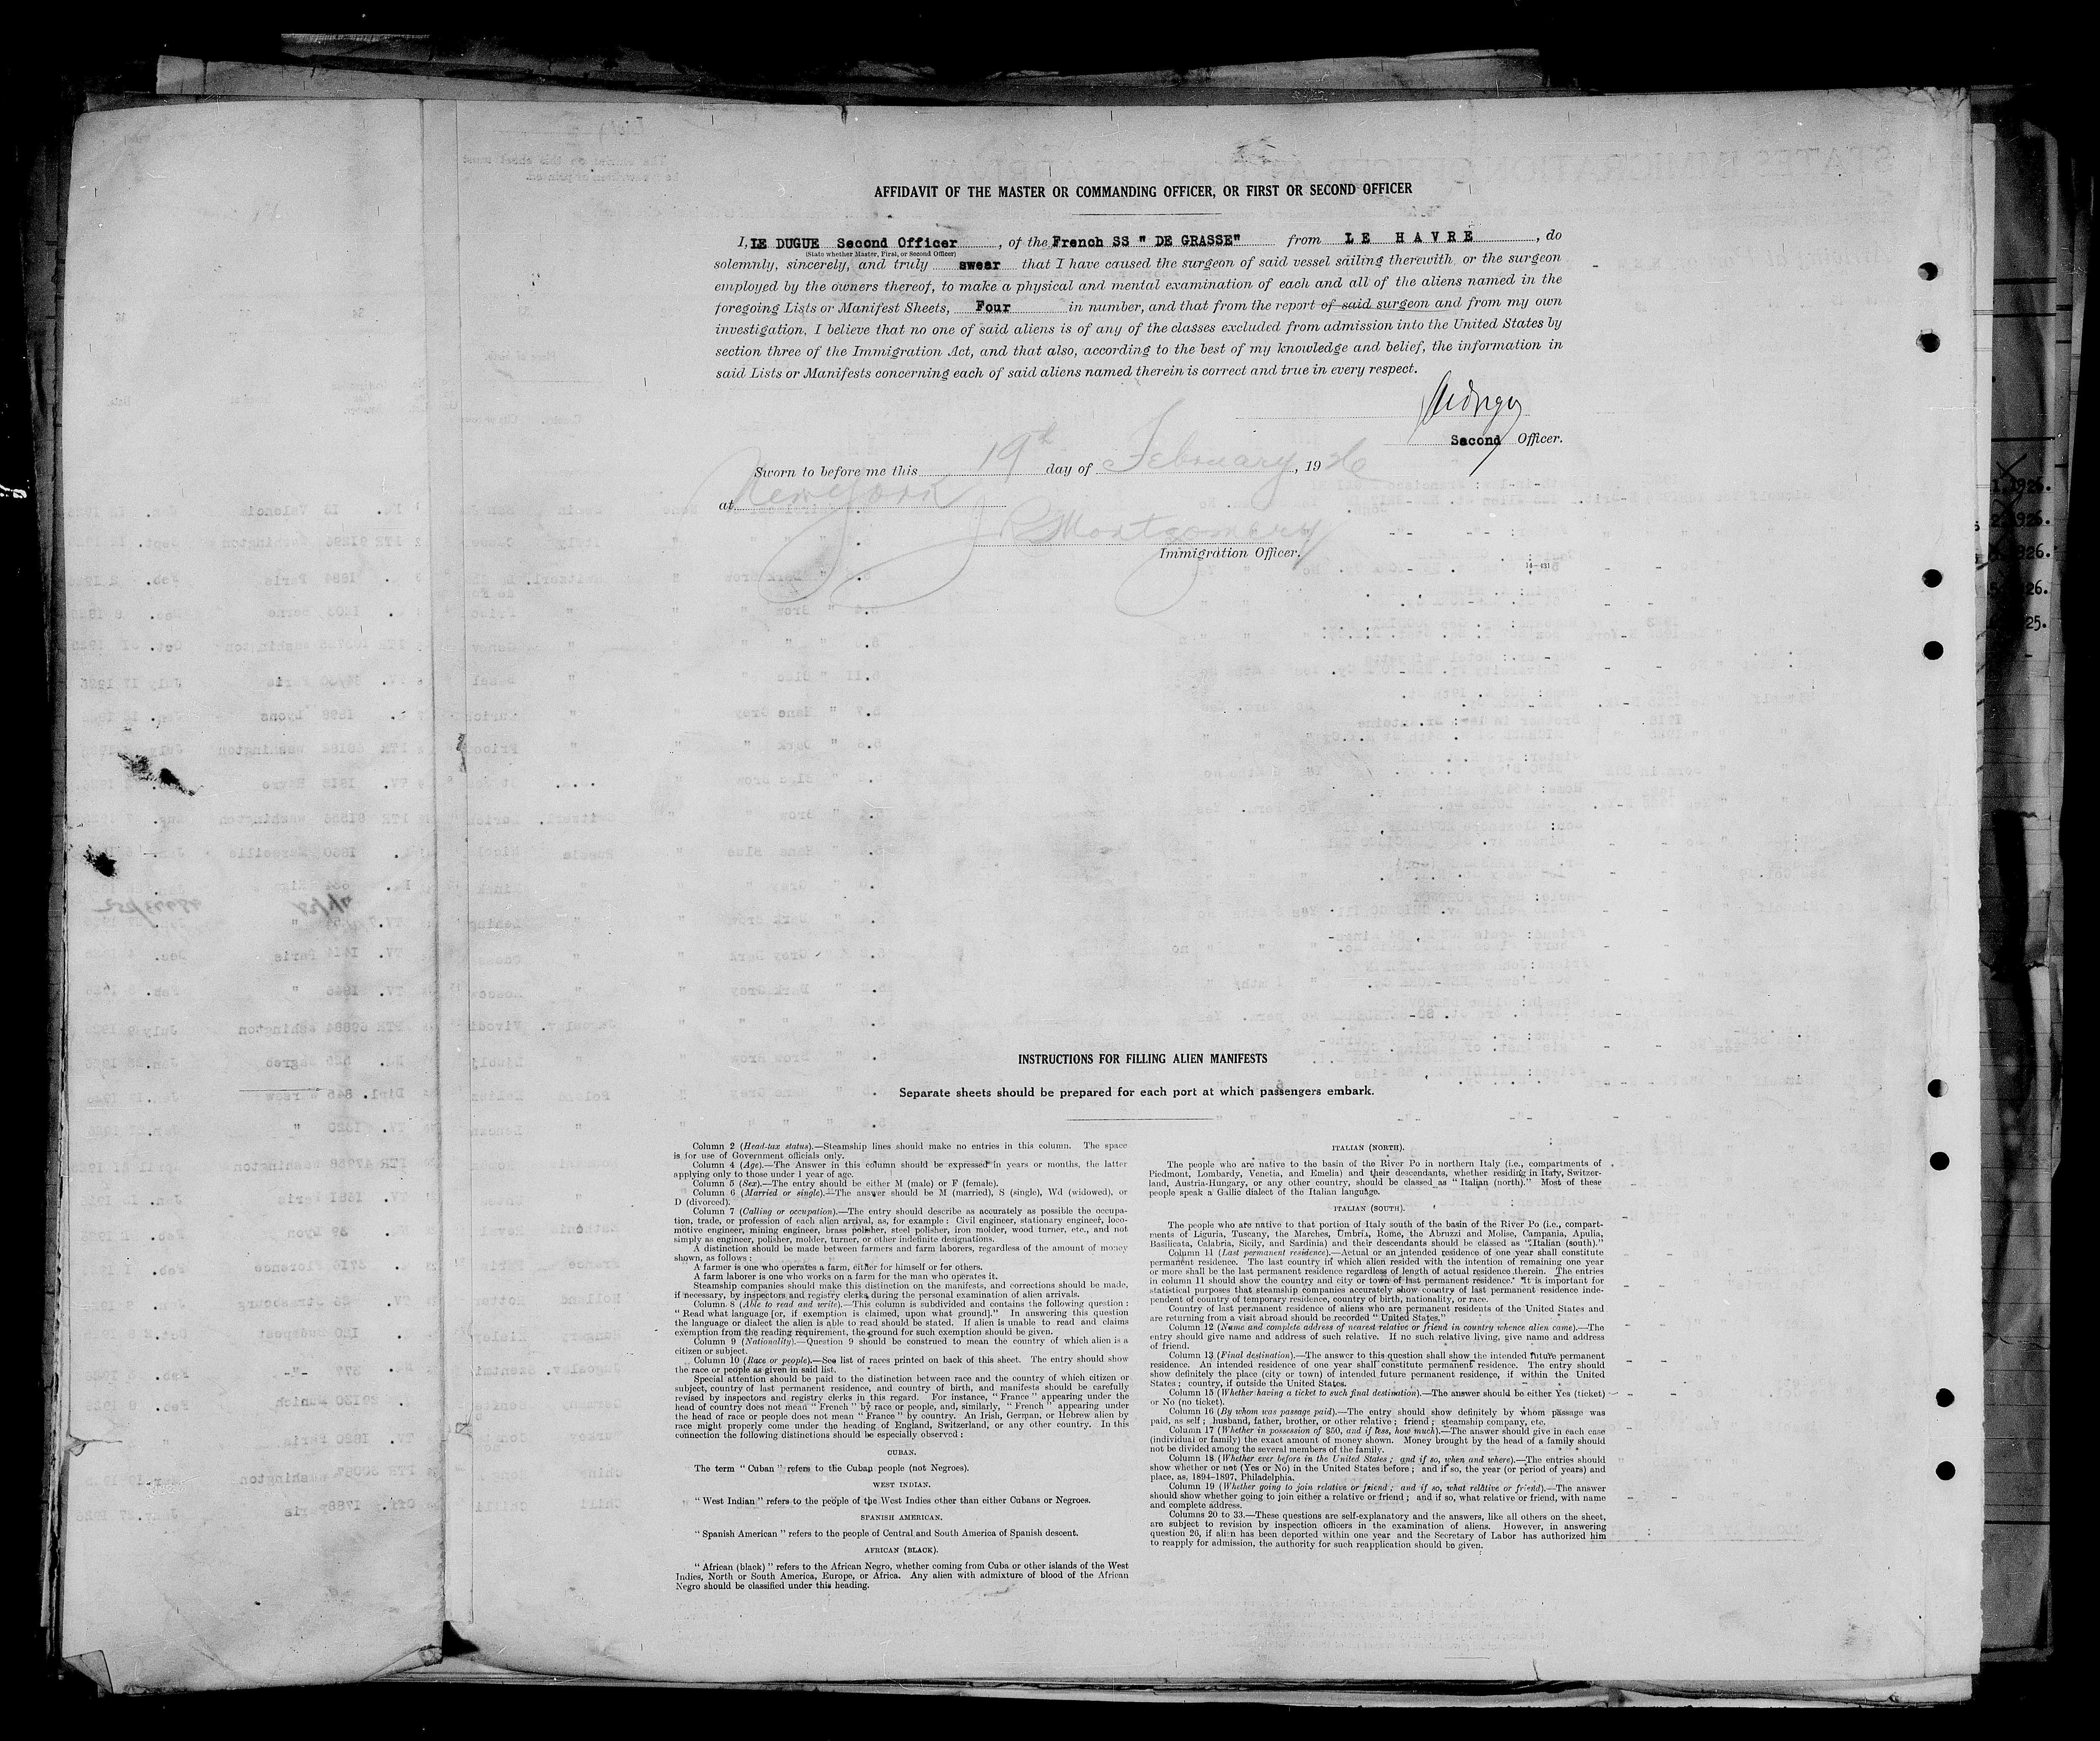 AFFIDAVIT OF THE MASTER OR COMMANDING OFFICER, OR FIRST OR SECOND OFFICER
I, LE DUGUE Second Officer, of the French SS " DE GRASSE" from LE HAVRE, do
(State whether Master, First, or Second Officer)
solemnly, sincerely, and truly swear that I have caused the surgeon of said vessel sailing therewith, or the surgeon
employed by the owners thereof, to make a physical and mental examination of each and all of the aliens named in the
foregoing Lists or Manifest Sheets, Four in number, and that from the report of said surgeon and from my own
investigation, I believe that no one of said aliens is of any of the classes excluded from admission into the United States by
section three of the Immigration Act, and that also, according to the best of my knowledge and belief, the information in
said Lists or Manifests concerning each of said aliens named therein is correct and true in every respect.
Second Officer.
Sworn to before me this 19th day of February, 1926
at New York
J R Montgomery
Immigration Officer.
14—431
INSTRUCTIONS FOR FILLING ALIEN MANIFESTS
Separate sheets should be prepared for each port at which passengers embark.
Column 2 (Head-tax status).—Steamship lines should make no entries in this column. The space
is for use of Government officials only.
Column 4 (Age).—The Answer in this column should be expressed in years or months, the latter
applying only to those under 1 year of age.
Column 5 (Sex).—The entry should be either M (male) or F (female).
Column 6 (Married or single).—The answer should be M (married), S (single), Wd (widowed), or
D (divorced).
Column 7 (Calling or occupation).—The entry should describe as accurately as possible the occupa-
tion, trade, or profession of each alien arrival, as, for example : Civil engineer, stationary engineer, loco-
motive engineer, mining engineer, brass polisher, steel polisher, iron molder, wood turner, etc., and not
simply as engineer, polisher, molder, turner, or other indefinite designations.
A distinction should be made between farmers and farm laborers, regardless of the amount of money
shown, as follows :
A farmer is one who operates a farm, either for himself or for others.
A farm laborer is one who works on a farm for the man who operates it.
Steamship companies should make this distinction on the manifests, and corrections should be made,
if necessary, by inspectors and registry clerks during the personal examination of alien arrivals.
Column 8 (Able to read and write).—This column is subdivided and contains the following question :
" Read what language [or, if exemption is claimed, upon what ground]." In answering this question
the language or dialect the alien is able to read should be stated. If alien is unable to read and claims
exemption from the reading requirement, the ground for such exemption should be given.
Column 9 (Nationality).—Question 9 should be construed to mean the country of which alien is a
citizen or subject.
Column 10 (Race or people).—See list of races printed on back of this sheet. The entry should show
the race or people as given in said list.
Special attention should be paid to the distinction between race and the country of which citizen or
subject, country of last permanent residence, and country of birth, and manifests should be carefully
revised by inspectors and registry clerks in this regard. For instance, " France " appearing under the
head of country does not mean " French " by race or people, and, similarly, " French " appearing under
the head of race or people does not mean " France " by country. An Irish, German, or Hebrew alien by
race might properly come under the heading of England, Switzerland, or any other country. In this
connection the following distinctions should be especially observed :
CUBAN.
The term " Cuban " refers to the Cuban people (not Negroes).
WEST INDIAN.
" West Indian " refers to the people of the West Indies other than either Cubans or Negroes.
SPANISH AMERICAN.
" Spanish American " refers to the people of Central and South America of Spanish descent.
AFRICAN (BLACK).
" African (black) " refers to the African Negro, whether coming from Cuba or other islands of the West
Indies, North or South America, Europe, or Africa. Any alien with admixture of blood of the African
Negro should be classified under this heading.
ITALIAN (NORTH).
The people who are native to the basin of the River Po in northern Italy (i.e., compartments of
Piedmont, Lombardy, Venetia, and Emelia) and their descendants, whether residing in Italy, Switzer-
land, Austria-Hungary, or any other country, should be classed as " Italian (north)." Most of these
people speak a Gallic dialect of the Italian language.
ITALIAN (SOUTH).
The people who are native to that portion of Italy south of the basin of the River Po (i.e., compart-
ments of Liguria, Tuscany, the Marches, Umbria, Rome, the Abruzzi and Molise, Campania, Apulia,
Basilicata, Calabria, Sicily, and Sardinia) and their descendants should be classed as " Italian (south)."
Column 11 (Last permanent residence).—Actual or an intended residence of one year shall constitute
permanent residence. The last country in which alien resided with the intention of remaining one year
or more shall be the last permanent residence regardless of length of actual residence therein. The entries
in column 11 should show the country and city or town of last permanent residence. It is important for
statistical purposes that steamship companies accurately show country of last permanent residence inde-
pendent of country of temporary residence, country of birth, nationality, or race.
Country of last permanent residence of aliens who are permanent residents of the United States and
are returning from a visit abroad should be recorded " United States."
Column 12 (Name and complete address of nearest relative or friend in country whence alien came).—The
entry should give name and address of such relative. If no such relative living, give name and address
of friend.
Column 13 (Final destination).—The answer to this question shall show the intended future permanent
residence. An intended residence of one year shall constitute permanent residence. The entry should
show definitely the place (city or town) of intended future permanent residence, if within the United
States ; country, if outside the United States.
Column 15 (Whether having a ticket to such final destination).—The answer should be either Yes (ticket)
or No (no ticket).
Column 16 (By whom was passage paid).—The entry should show definitely by whom passage was
paid, as self ; husband, father, brother, or other relative ; friend ; steamship company, etc.
Column 17 (Whether in possession of $50, and if less, how much).—The answer should give in each case
(individual or family) the exact amount of money shown. Money brought by the head of a family should
not be divided among the several members of the family.
Column 18 (Whether ever before in the United States ; and if so, when and where).—The entries should
show whether or not (Yes or No) in the United States before ; and if so, the year (or period of years) and
place, as, 1894–1897, Philadelphia.
Column 19 (Whether going to join relative or friend ; and if so, what relative or friend).—The answer
should show whether going to join either a relative or friend ; and if so, what relative or friend, with name
and complete address.
Columns 20 to 33.—These questions are self-explanatory and the answers, like all others on the sheet,
are subject to revision by inspection officers in the examination of aliens. However, in answering
question 26, if alien has been deported within one year and the Secretary of Labor has authorized him
to reapply for admission, the authority for such reapplication should be given.